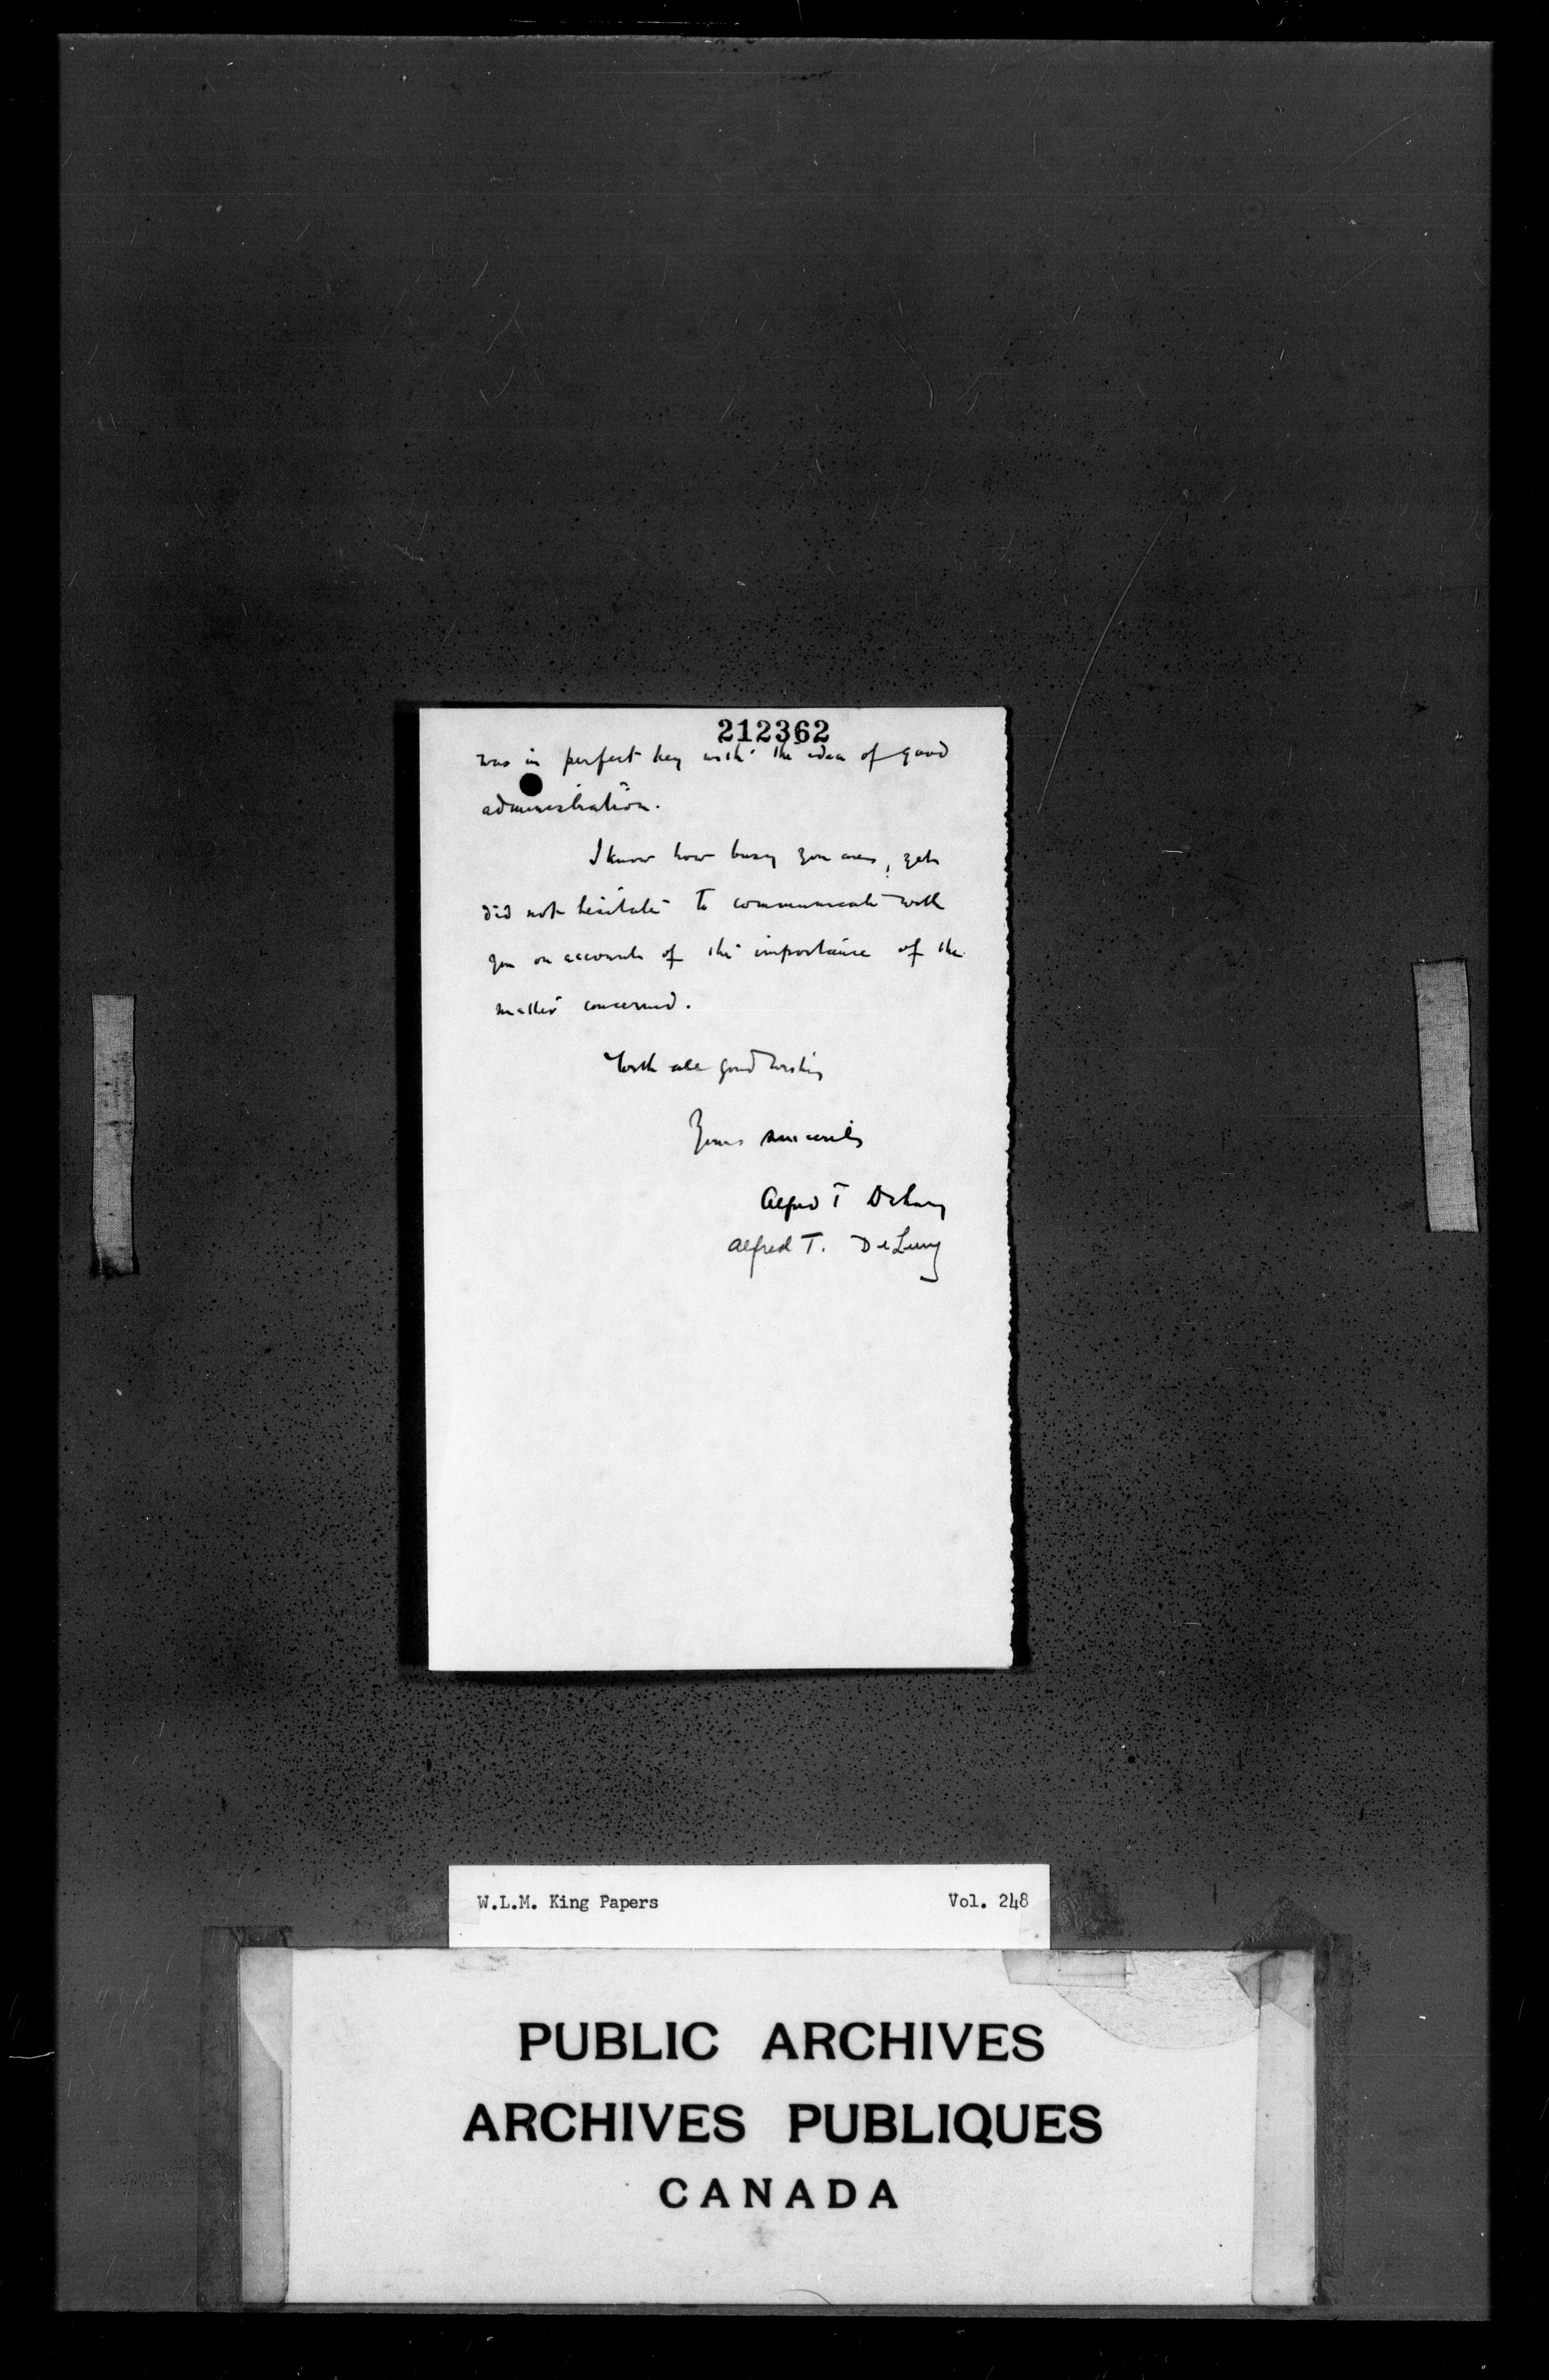 212362
was in perfect key with the idea of good
administration.
I know how busy you are, yet
did not hesitate to communicate with
you on account of the importance of the
matter concerned.
With all good wishes
Yours sincerely
Alfred T DeLury
Alfred T. DeLury
W.L.M. King Papers Vol. 248
PUBLIC ARCHIVES
ARCHIVES PUBLIQUES
CANADA